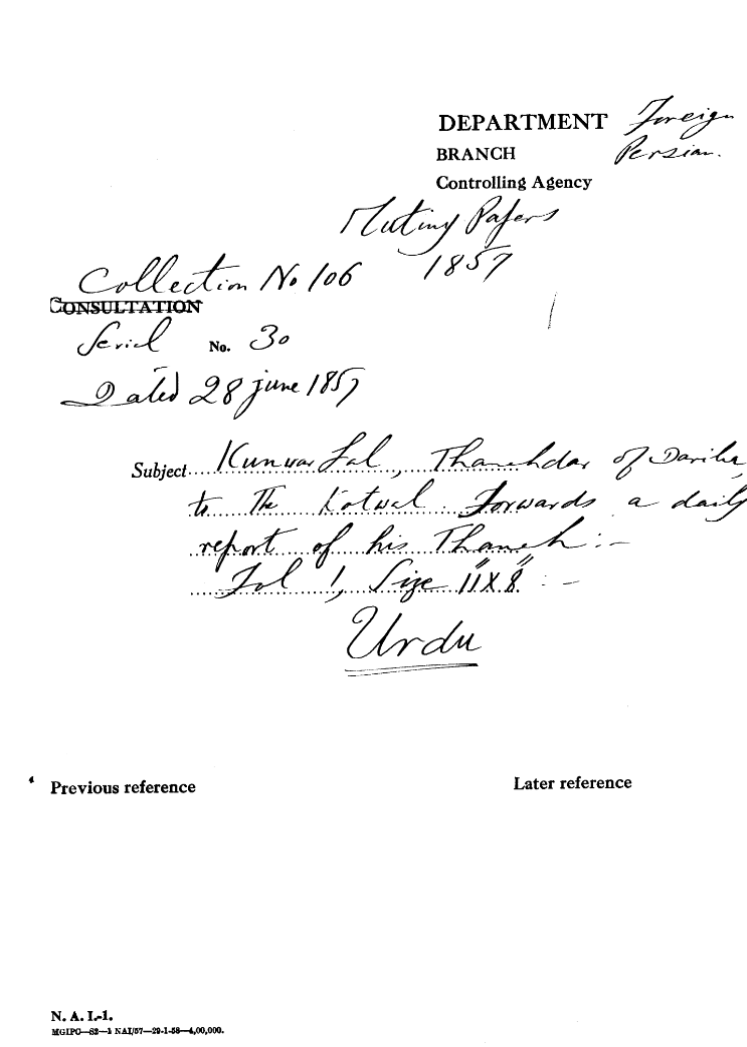 DEPARTMENT Foreign
BRANCH Persian.
Controlling Agency
Mutiny Papers
1857
Collection No 106
CONSULTATION
Serial No. 30
Dated 28 june 1857
Subject Kunwar Lal, Thanehdar of Dariba,
to The Kotwal. Forwards a daily
report of his Thaneh:-
Fol 1, Size 11"X8":-
Urdu
Previous reference Later reference
N. A. I.-1.
MGIPC—S2—1 NAI/57—29-1-58—4,00,000.